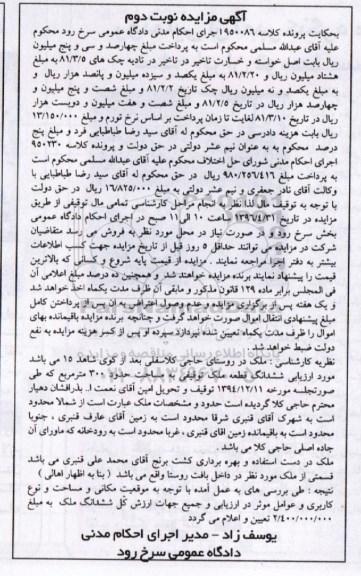 آگهی مزایده نوبت دوم
بحکایت پرونده کلاسه ۱۹۵۰۰۸۶ اجرای احکام مدنی دادگاه عمومی سرخ رود محکوم
علیه آقای عبدالله مسلمی محکوم است به پرداخت مبلغ چهارصد و سی و پنج میلیون
ریال بابت اصل خواسته و خسارت تاخیر در تاخیر در تادیه چک های ۸۱/۳/۵ به مبلغ
هشتاد میلیون ریال و ۸۱/۲/۲۰ به مبلغ یکصد و سیزده میلیون و پانصد هزار ریال و
به مبلغ یکصد و نه میلیون ریال چک تاریخ ۸۱/۲/۲ و مبلغ شصت و پنج میلیون و
چهارصد هزار ریال در تاریخ ۸۱/۲/۵ و مبلغ شصت و هفت میلیون و دویست هزار
ریال در تاریخ ۸۱/۳/۱۰ لغایت تا زمان پرداخت بر اساس نرخ تورم و مبلغ ۱۳/۱۵۰/۰۰۰
ریال بابت هزینه دادرسی در حق محکوم له آقای سید رضا طباطبایی فرد و مبلغ پنج
درصد محکوم به به عنوان نیم عشر دولتی در حق دولت و پرونده کلاسه ۹۵۰۲۳۰
اجرای احکام مدنی شورای حل اختلاف محکوم علیه آقای عبدالله مسلمی محکوم است
به پرداخت مبلغ ۹۸۰/۲۵۶/۴۱۶ ریال در حق محکوم له آقای سید رضا طباطبایی با
وکالت آقای نادر جعفری و نیم عشر دولتی به مبلغ ۱۶/۸۲۵/۰۰۰ ریال در حق دولت
با توجه به توقیف مال لذا نظر به انجام مراحل کارشناسی تمامی مال توقیفی از طریق
مزایده در تاریخ ۱۳۹۶/۴/۳۱ ساعت ۱۰ الی ۱۱ صبح در اجرای احکام دادگاه عمومی
بخش سرخ رود و در صورت نیاز در محل مورد نظر به فروش می رسد متقاضیان
شرکت در مزایده می توانند حداقل ۵ روز قبل از تاریخ مزایده جهت کسب اطلاعات
بیشتر به دفتر اجرا مراجعه نمایند . مزایده از قیمت پایه شروع و کسانی که بالاترین
قیمت را پیشنهاد نمایند برنده مزایده خواهند شد و همچنین ده درصد مبلغ اعلامی آن
فی المجلس برابر ماده ۱۲۹ قانون مذکور و مابقی آن ظرف مدت یکماه اخذ خواهد شد
و یک هفته پس از برگزاری مزایده و عدم وصول اعتراض به آن پس از پرداختن کامل
مبلغ پیشنهادی انتقال اموال صورت خواهد گرفت و چنانچه برنده مزایده باقیمانده بهای
اموال را ظرف مدت یکماه تعیین شده نپردازد سپرده او پس از کسر هزینه مزایده به نفع
دولت ضبط خواهد شد.
نظریه کارشناسی : ملک در روستای حاجی کلاسفلی بعد از کوی شاهد ۱۵ می باشد
مورد ارزیابی ششدانگ قطعه ملک توقیفی به مساحت حدود ۳۰۰ مترمربع که طی
صورتجلسه مورخه ۱۳۹۴/۱۲/۱۱ توقیف و تحویل امین آقای نعمت ا.. بذرافشان دهیار
محترم حاجی کلا گردیده است حدود و مشخصات ملک عبارت است از شمالا محدود
است به شهرک آقای قنبری شرقا محدود است به زمین آقای عارف قنبری ، جنوبا
محدود است به باقیمانده زمین آقای قنبری ، غربا محدود است به رودخانه که ماورای آن
جاده اصلی حاجی کلا می باشد .
ملک در دست استفاده و بهره برداری کشت برنج آقای محمد علی قنبری می باشد
قسمتی از ملک مورد نظر در داخل بافت روستا واقع می باشد ( بنا به اظهار اهالی )
نتیجه : طی بررسی های به عمل آمده با توجه به موقعیت مکانی و مساحت و نوع
کاربری و عوامل موثر در ارزیابی و جمیع جهات ارزش کل ششدانگ ملک به مبلغ
۲/۴۰۰/۰۰۰/۰۰۰ تعیین و اعلام می گردد
یوسف زاد - مدیر اجرای احکام مدنی
دادگاه عمومی سرخ رود